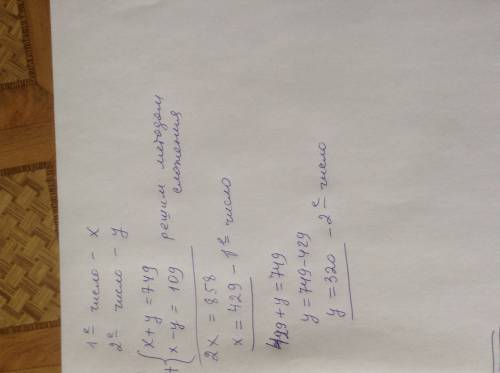 1е число - x
2е число - y
+ { x + y = 749 решим методом
x - y = 109 сложения
2x = 858
x = 429 - 1е число
429 + y = 749
y = 749 - 429
y = 320 - 2е число